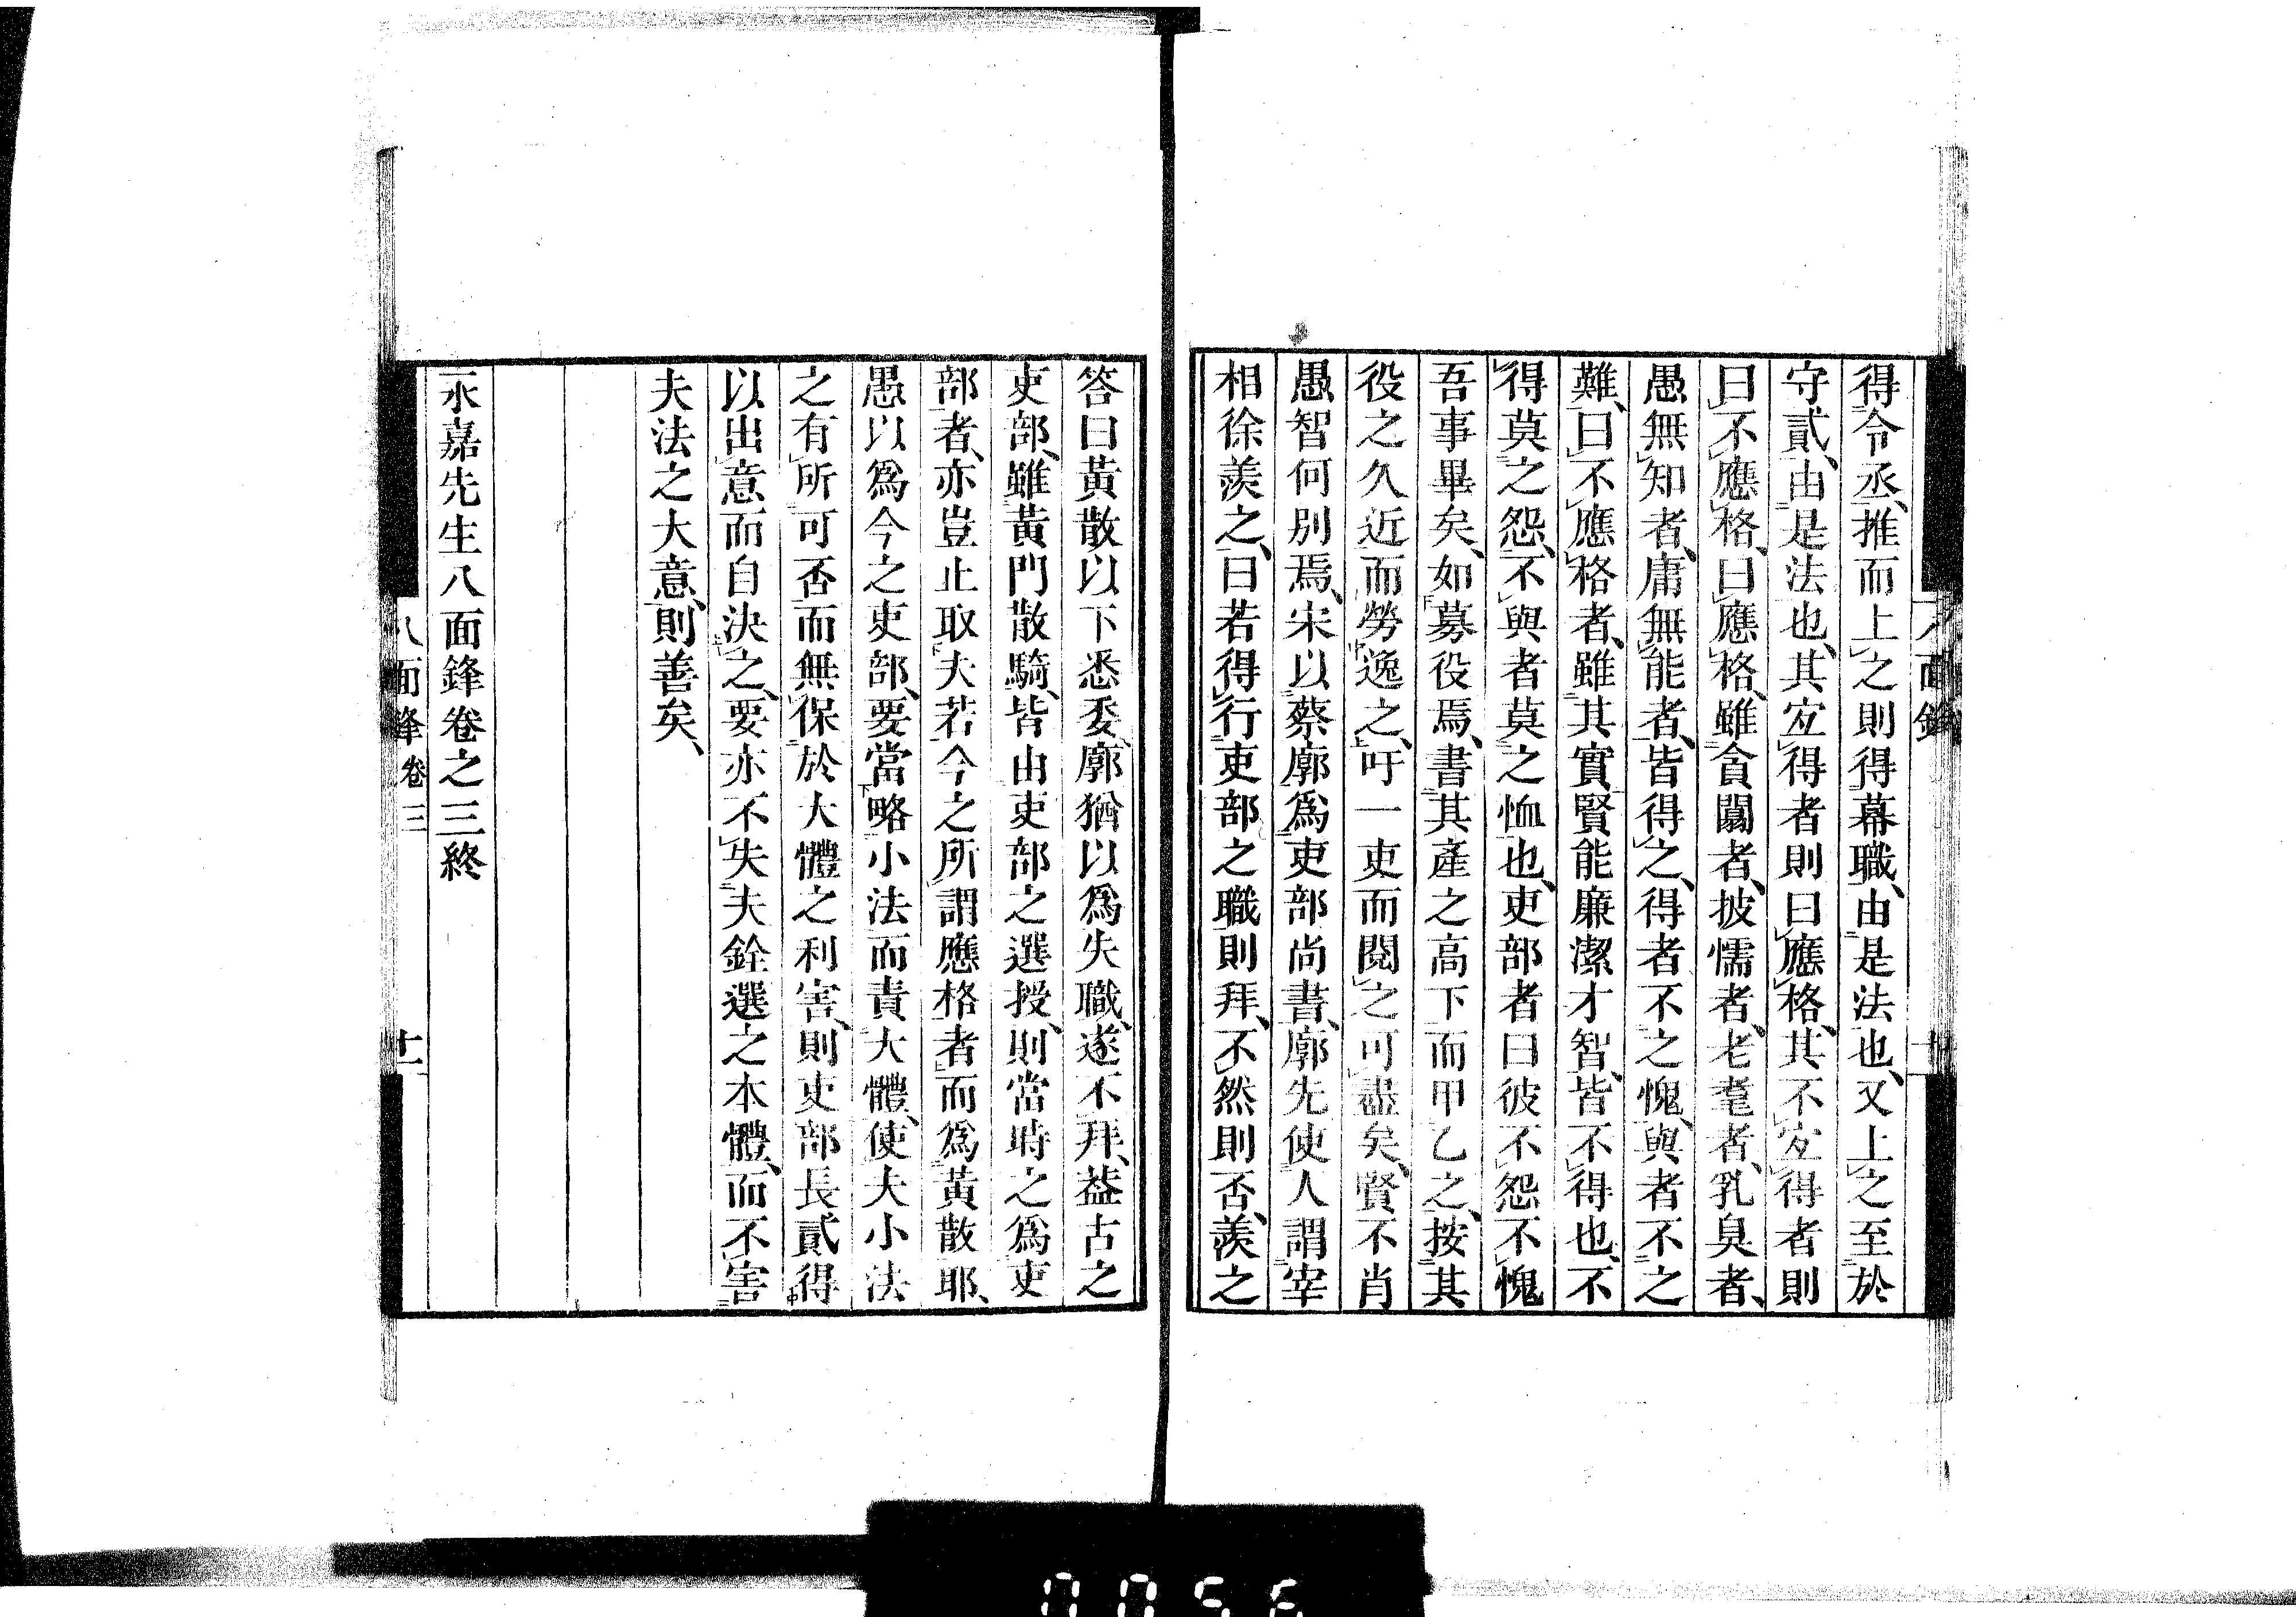 得令丞、推而上之則得幕職、由是法也、又上之至於
守貳、由是法也、其宜得者則曰應格、其不宜得者則
曰不應格、曰應格、雖貪闒者、披懦者、老耄者、乳臭者、
愚無知者、庸無能者、皆得之、得者不之愧、與者不之
難、曰不應格者、雖其實賢能廉潔才智、皆不得也、不
得莫之怨、不與者莫之恤也、吏部者曰彼不怨不愧
吾事畢矣、如募役焉、書其產之高下而甲乙之、按其
役之久近而勞逸之、吁一吏而閱之可盡矣、賢不肖
愚智何別焉、宋以蔡廓爲吏部尚書、廓先使人謂宰
相徐羨之、曰若得行吏部之職則拜、不然則否、羨之
答曰黃散以下悉委、廓猶以爲失職、遂不拜、蓋古之
吏部、雖黃門散騎、皆由吏部之選授、則當時之爲吏
部者、亦豈止取夫若今之所謂應格者而爲黃散耶、
愚以爲今之吏部、要當略小法而責大體、使夫小法
之有所可否而無保於大體之利害、則吏部長貳得
以出意而自決之、要亦不失夫銓選之本體、而不害
夫法之大意、則善矣、
永嘉先生八面鋒卷之三終
八面鋒 卷三
十一
0056